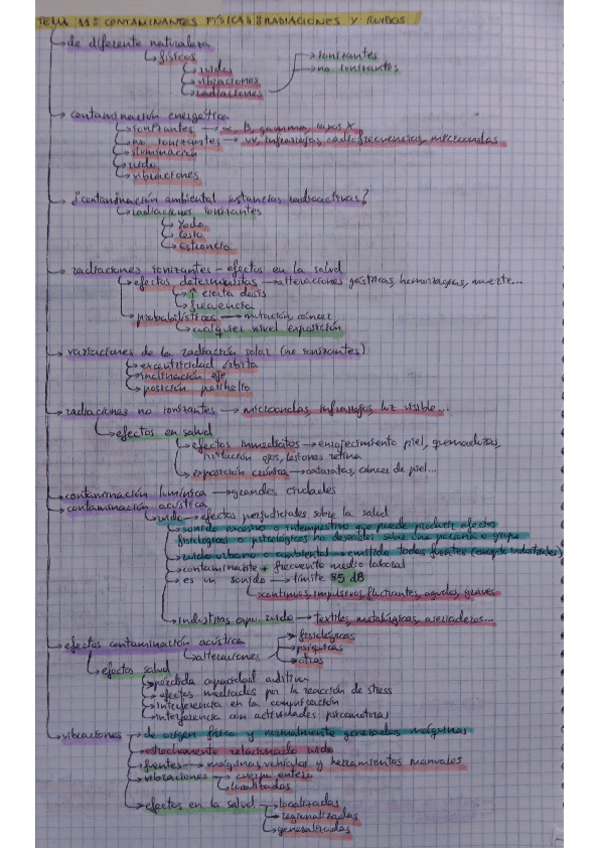 TEMA 11: CONTAMINANTES FÍSICOS: RADIACIONES Y RUIDOS
de diferente naturaleza
físicos → ionizantes
ruidos → no ionizantes
vibraciones
radiaciones
contaminación energética
ionizantes → α, β, gamma, rayos X
no ionizantes → uv, infrarrojos, radiofrecuencias, microondas
iluminación
ruido
vibraciones
¿contaminación ambiental sustancias radioactivas?
radiaciones ionizantes
Yodo
Cesio
Estroncio
radiaciones ionizantes - efectos en la salud
efectos deterministas → alteraciones gástricas, hemorragias, muerte...
↑ cierta dosis
frecuencia
probabilísticos → mutación, cáncer
cualquier nivel exposición
variaciones de la radiación solar (no ionizantes)
excentricidad órbita
inclinación eje
posición perihelio
radiaciones no ionizantes → microondas, infrarrojos, luz visible...
efectos en salud
efectos inmediatos → enrojecimiento piel, quemaduras,
irritación ojos, lesiones retina
exposición crónica → cataratas, cáncer de piel...
contaminación lumínica → grandes ciudades
contaminación acústica
ruido → efectos perjudiciales sobre la salud
sonido excesivo o intempestivo que puede producir efectos
fisiológicos o psicológicos no deseados sobre una persona o grupo
ruido urbano o ambiental → emitido todas fuentes (excepto industriales)
contaminante + frecuente medio laboral
es un sonido → límite 85 dB
continuos, impulsivos, fluctuantes, agudos, graves
industrias ruido → textiles, metalúrgicas, aserraderos...
efectos contaminación acústica
alteraciones → fisiológicas
psíquicas
otras
efectos salud
pérdida capacidad auditiva
efectos mediados por la reacción de stress
interferencia en la comunicación
interferencia con actividades psicomotoras
vibraciones → de origen físico y normalmente generadas máquinas
estrechamente relacionado ruido
fuentes → máquinas, vehículos y herramientas manuales
vibraciones → cuerpo entero
localizadas
efectos en la salud → localizadas
regionalizadas
generalizadas